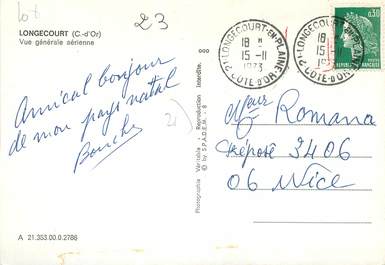 lot
23
LONGECOURT (C.-d'Or)
Vue générale aérienne
Amical bonjour
de mon pays natal
Bouche
21)
A 21.353.00.0.2786
Photographie Véritable - Reproduction Interdite.
© by S.P.A.D.E.M.
21-LONGECOURT-EN-PLAINE
18 H
15-11
1973
COTE-D'OR
21-LONGECOURT-EN-PLAINE
18 H
15-11
COTE-D'OR
0,30
REPUBLIQUE FRANCAISE
POSTES
Romana
3406
06 Nice